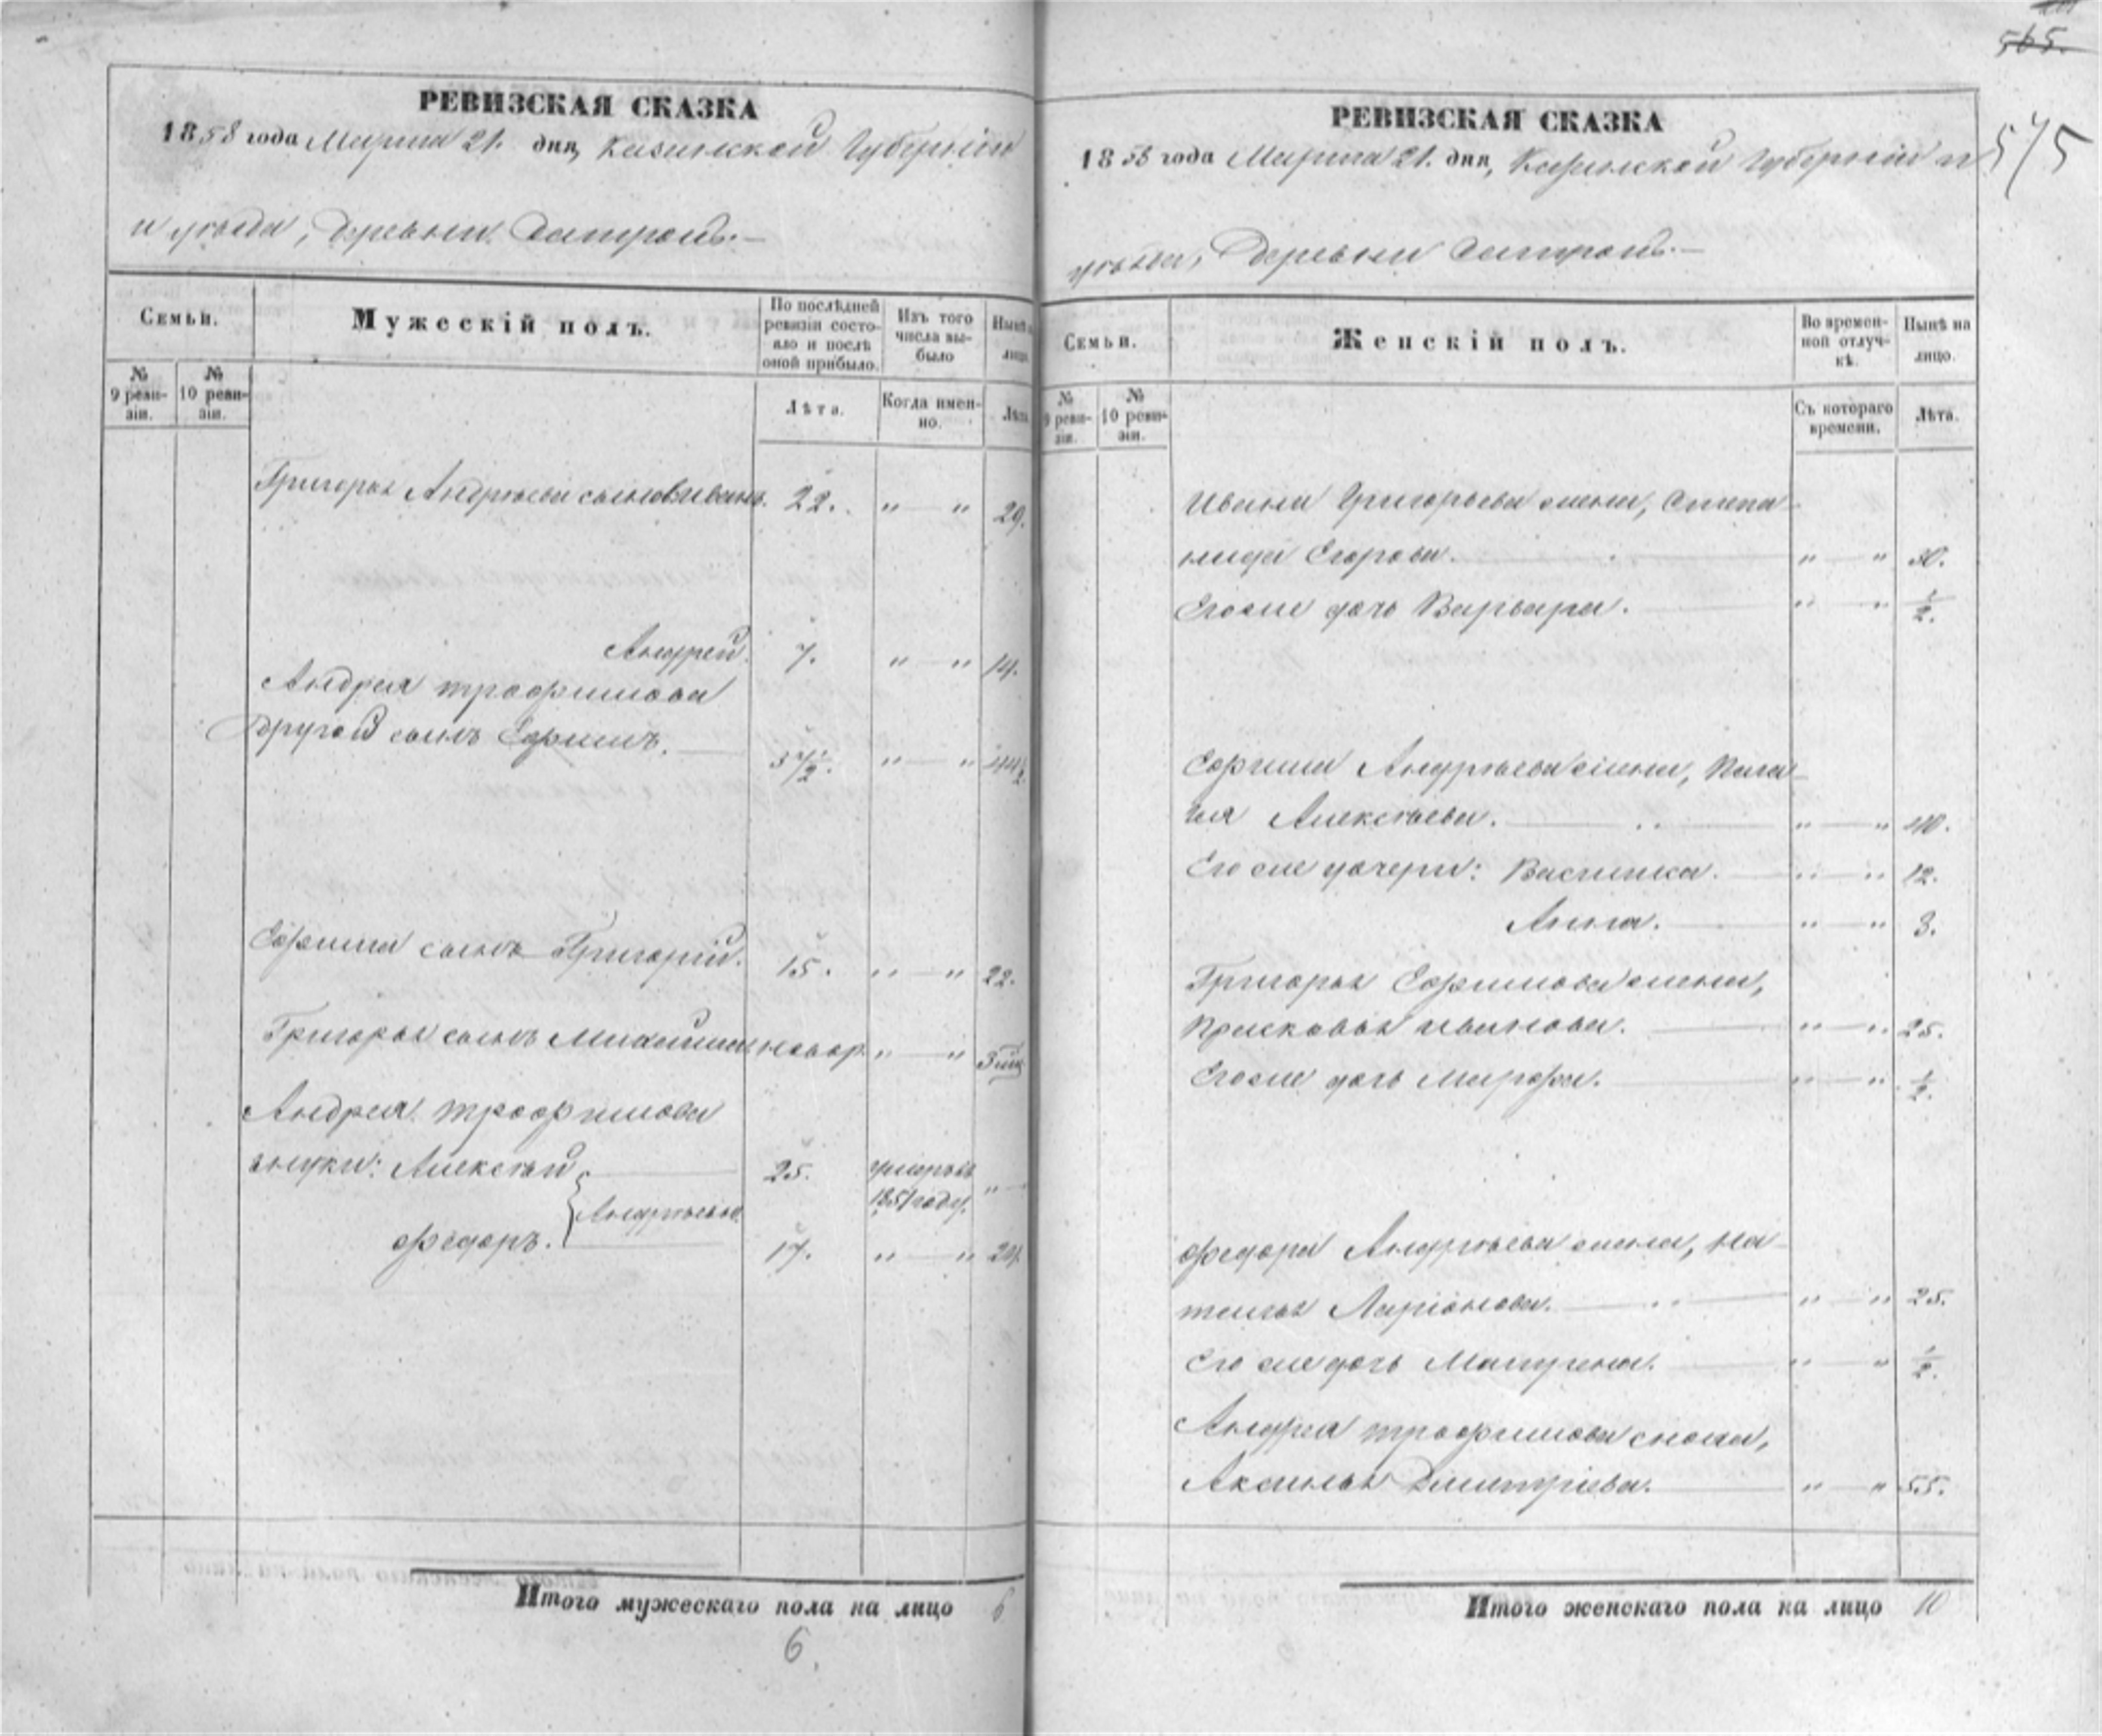 РЕВИЗСКАЯ СКАЗКА
1858 года Марта 21. дня, Казанской Губерніи
и уѣзда, Деревни
Семьи.
Мужескій полъ.
По послѣдней ревизіи состояло и послѣ оной прибыло.
Изъ того числа выбыло
Нынѣ на лицо.
№ 9 ревизіи.
№ 10 ревизіи.
Лѣта.
Когда именно.
Лѣта
Григорья Андреева сынов: Иванъ. 22. " — " 29.
Андрей. 7. " — " 14.
Андрея Трофимова
Другой сынъ Ефимъ. — 37½. " — " 44½.
Ефима сынъ Григорій. 15. " — " 22.
Григорья сынъ новор. " — " 3 мѣс
Андрея Трофимова
внуки: Алексѣй — 25. умеръ въ 1851 году. " —
Андреевы.
Федоръ. — 17. " — " 24.
Итого мужескаго пола на лицо 6
6.
565.
575
РЕВИЗСКАЯ СКАЗКА
1858 года Марта 21. дня, Казанской Губерніи и
уѣзда, Деревни
Семьи.
Женскій полъ.
Во временной отлучкѣ.
Нынѣ на лицо.
№ 9 ревизіи.
№ 10 ревизіи.
Съ котораго времени.
Лѣта.
Ивана Григорьева жена, Степа-
нида Егорова. — " — " 30.
Его же дочь Варвара. — " — " ½.
Ефима Андреева жена, Пела-
гея Алексѣева. — " — " 40.
Его же дочери: Василиса. — " — " 12.
Анна. — " — " 3.
Григорья Ефимова жена,
Прасковья Иванова. — " — " 25.
Его же дочь Марфа. — " — " ½.
Федора Андреева жена, На-
талья Ларіонова. — " — " 25.
Его же дочь Матрена. — " — " ½.
Андрея Трофимова сноха,
Аксинья Дмитріева. — " — " 55.
Итого женскаго пола на лицо 10